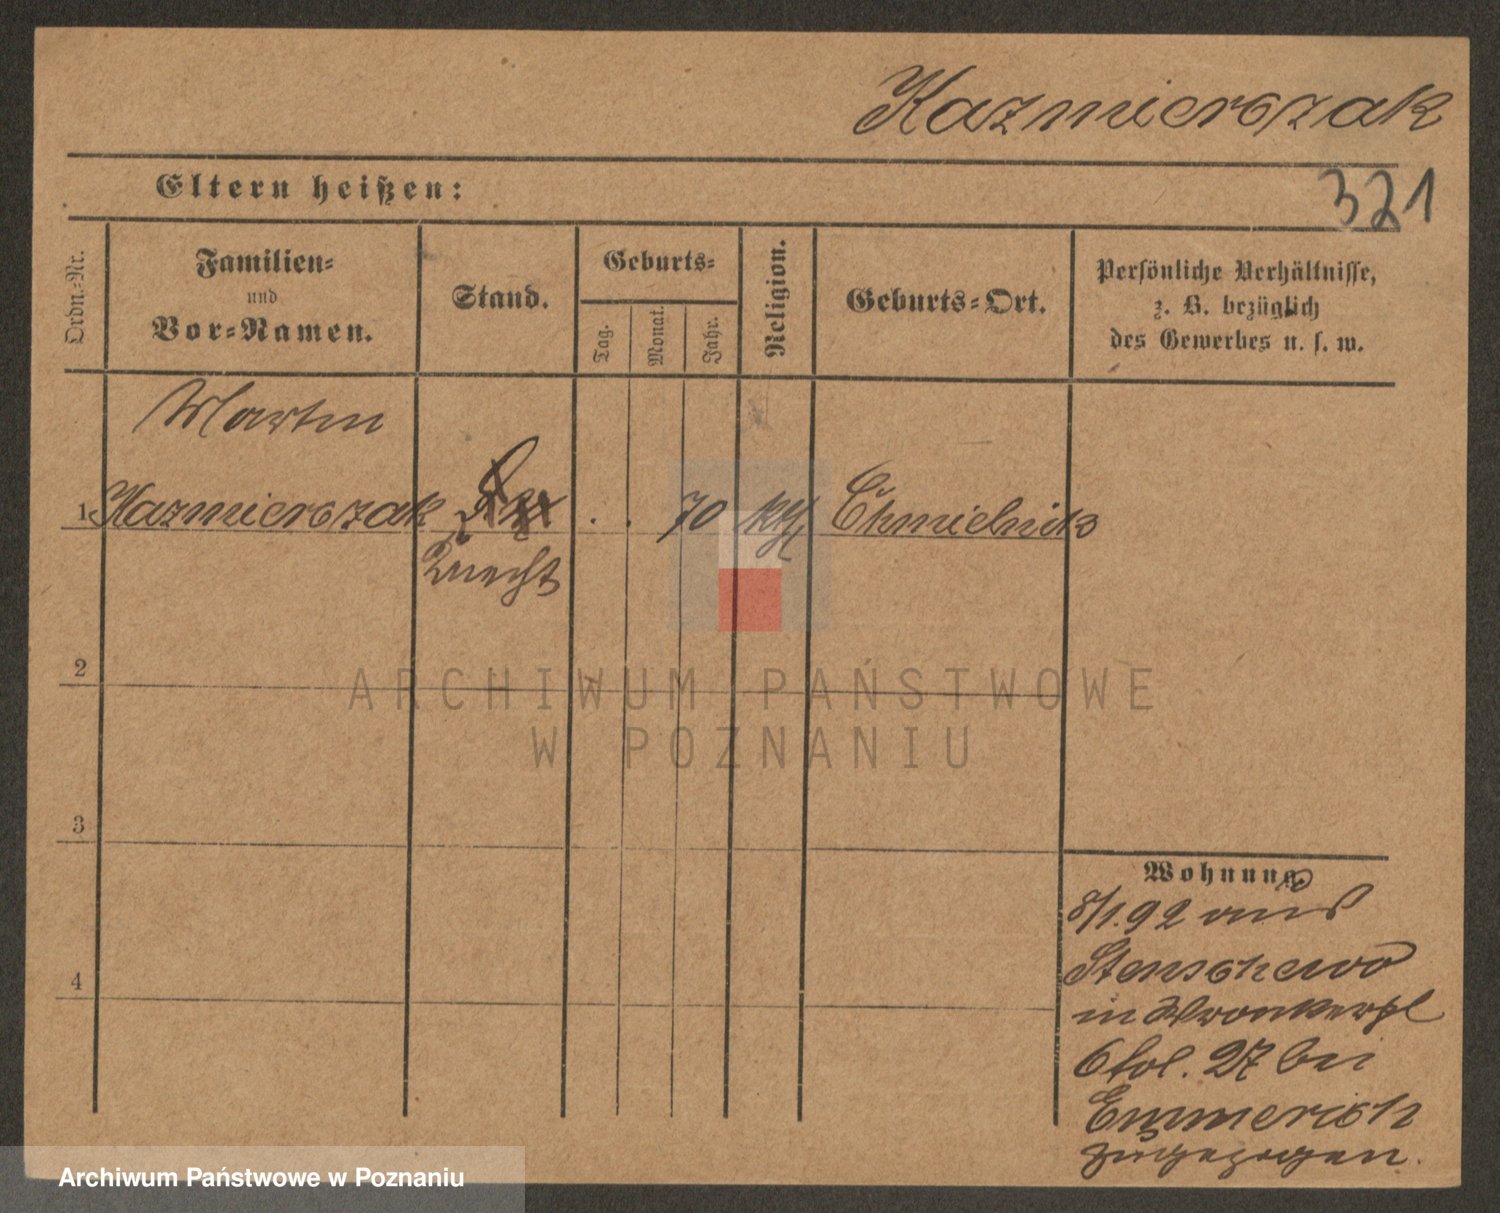 Kazmierczak
Eltern heißen:
321
Ordn.-Nr.
Familien-
und
Vor-Namen.
Stand.
Geburts-
Tag.
Monat.
Jahr.
Religion.
Geburts-Ort.
Persönliche Verhältnisse,
z. B. bezüglich
des Gewerbes u. s. w.
Martin
1 Kazmierczak . . 70 kth Chmielnik
Knecht
2
ARCHIWUM PAŃSTWOWE
W POZNANIU
3
Wohnung.
8/1.92 aus
4
Stenschewo
in Wronkerpl
6 fol. 27 bei
Emmerich
zugezogen.
Archiwum Państwowe w Poznaniu